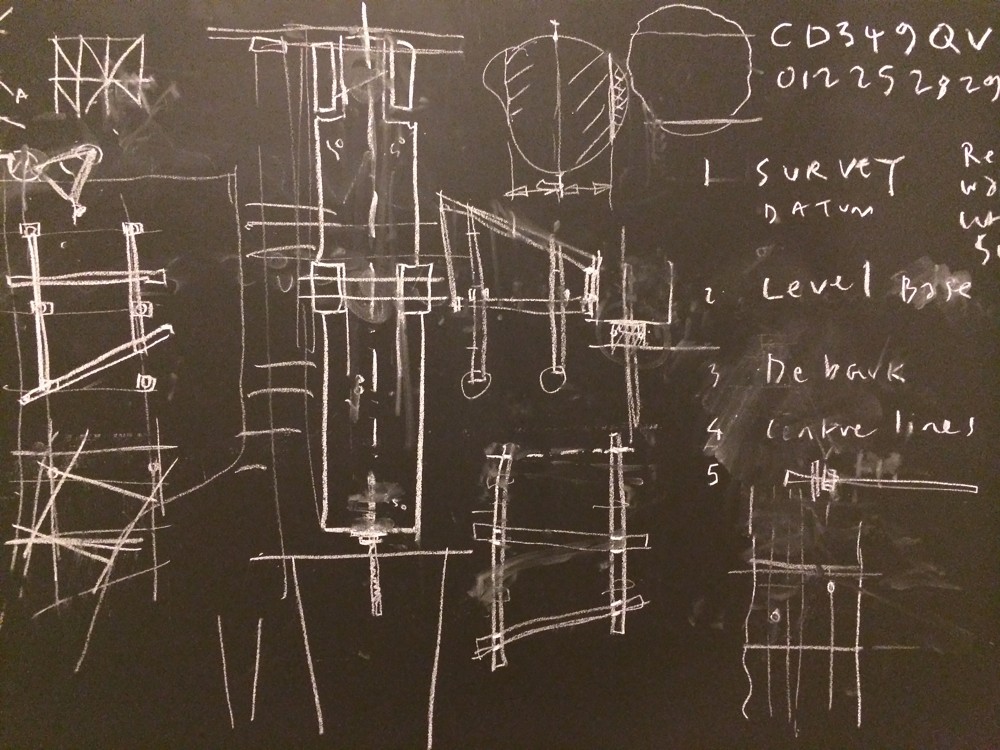 CD349QV
01225 2829
1 SURVEY
DATUM
Re
2 Level Base
3 Debark
4 Centre lines
5
A
50